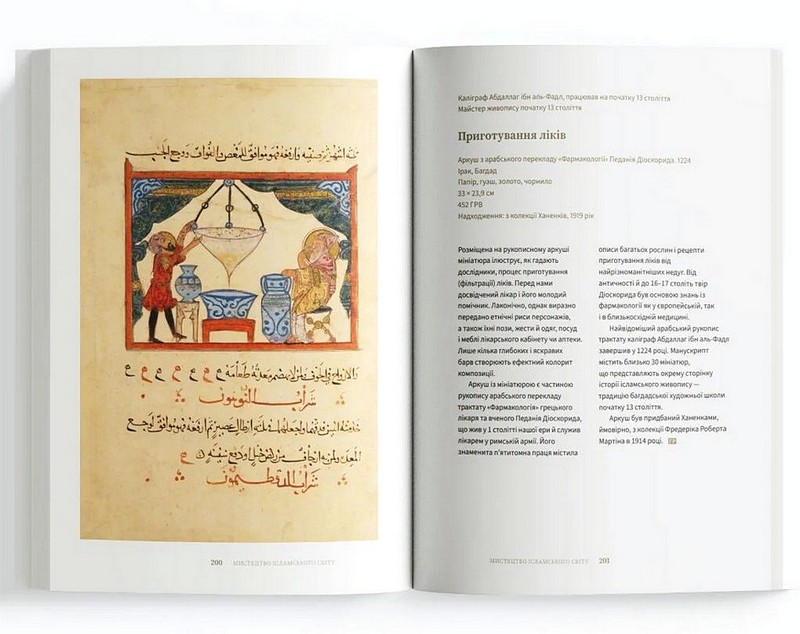 شراب
200 МИСТЕЦТВО ІСЛАМСЬКОГО СВІТУ
Каліграф Абдаллаг ібн аль-Фадл, працював на початку 13 століття
Майстер живопису початку 13 століття
Приготування ліків
Аркуш з арабського перекладу «Фармакології» Педанія Діоскорида. 1224
Ірак, Багдад
Папір, гуаш, золото, чорнило
33 × 23,9 см
452 ГРВ
Надходження: з колекції Ханенків, 1919 рік
Розміщена на рукописному аркуші
мініатюра ілюструє, як гадають
дослідники, процес приготування
(фільтрації) ліків. Перед нами
досвідчений лікар і його молодий
помічник. Лаконічно, однак виразно
передано етнічні риси персонажів,
а також їхні пози, жести й одяг, посуд
і меблі лікарського кабінету чи аптеки.
Лише кілька глибоких і яскравих
барв створюють ефектний колорит
композиції.
Аркуш із мініатюрою є частиною
рукопису арабського перекладу
трактату «Фармакологія» грецького
лікаря та вченого Педанія Діоскорида,
що жив у 1 столітті нашої ери й служив
лікарем у римській армії. Його
знаменита п'ятитомна праця містила
описи багатьох рослин і рецепти
приготування ліків від
найрізноманітніших недуг. Від
античності й до 16–17 століть твір
Діоскорида був основою знань із
фармакології як у європейській, так
і в близькосхідній медицині.
Найвідоміший арабський рукопис
трактату каліграф Абдаллаг ібн аль-Фадл
завершив у 1224 році. Манускрипт
містить близько 30 мініатюр,
що представляють окрему сторінку
історії ісламського живопису —
традицію багдадської художньої школи
початку 13 століття.
Аркуш був придбаний Ханенками,
ймовірно, з колекції Фредеріка Роберта
Мартіна в 1914 році.
МИСТЕЦТВО ІСЛАМСЬКОГО СВІТУ 201